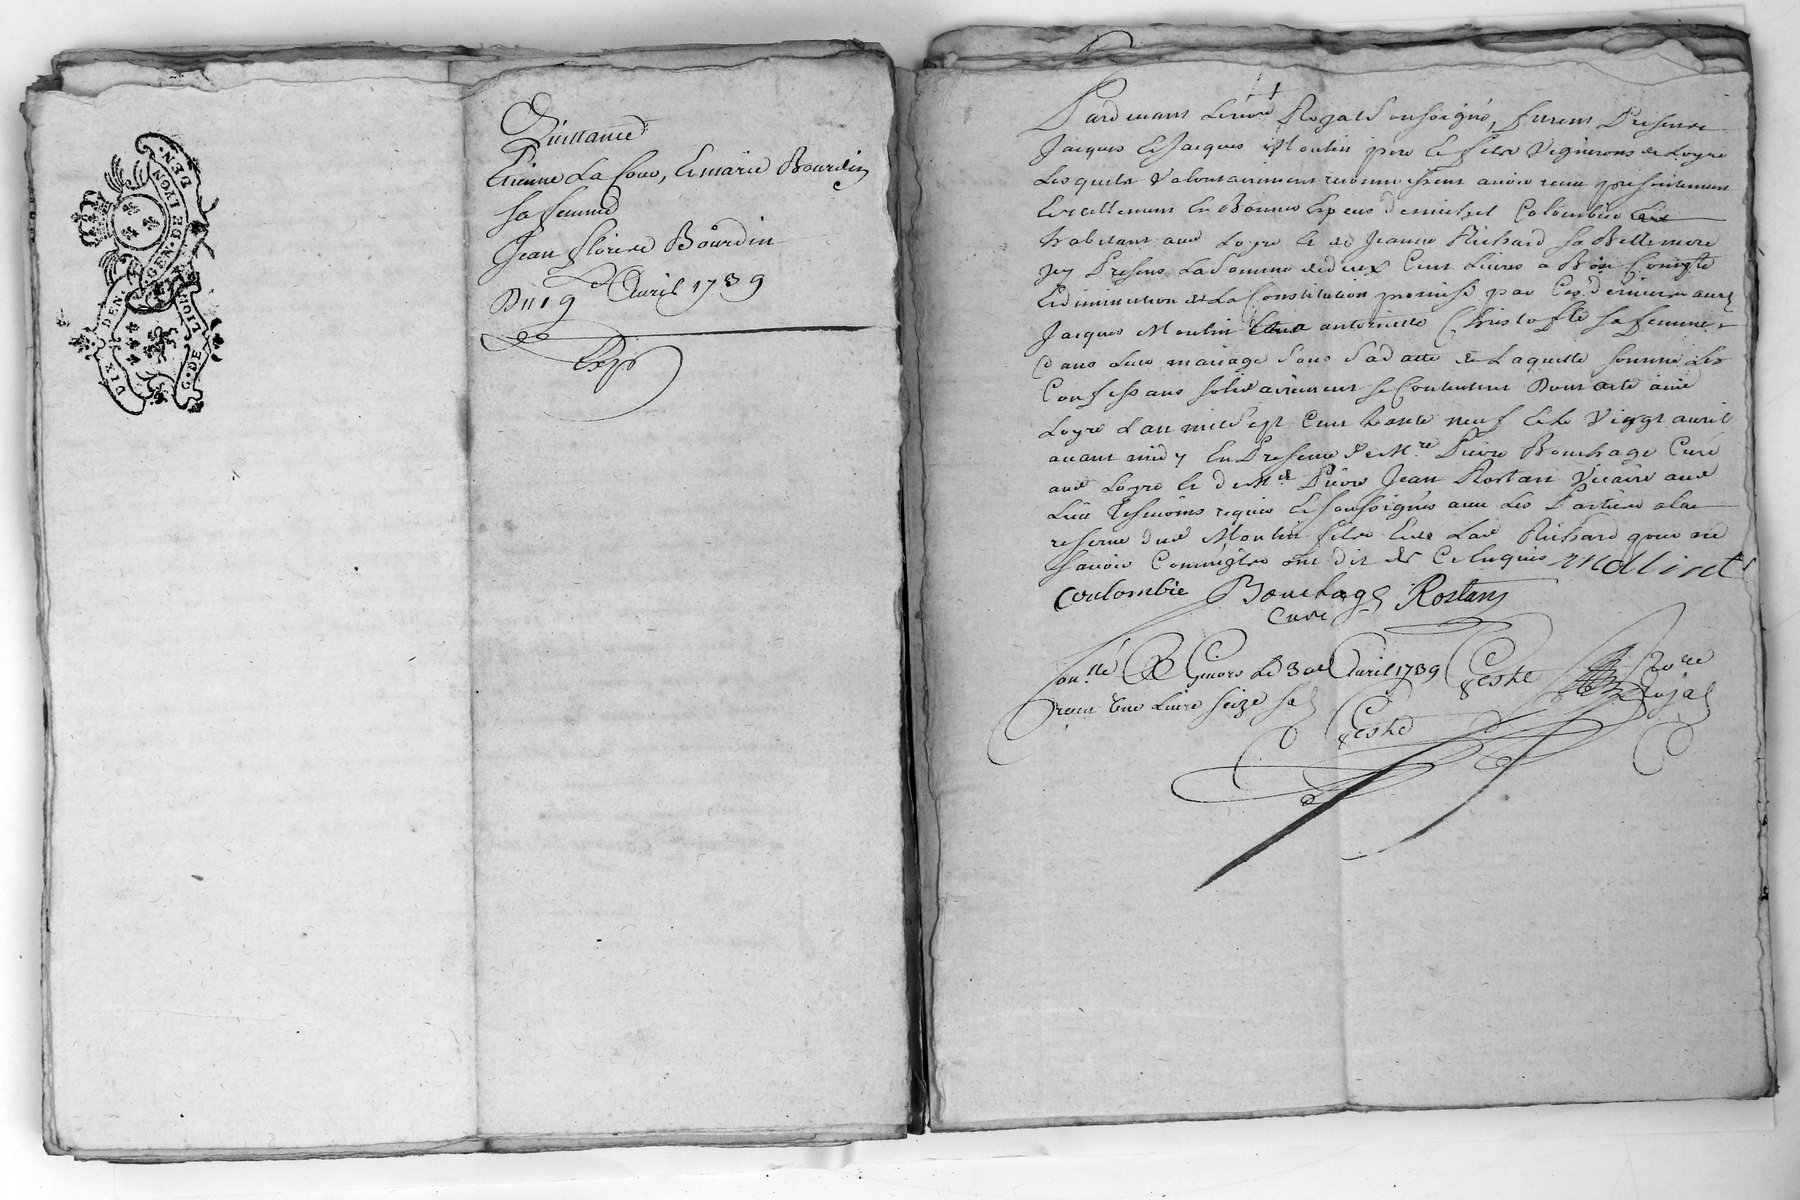 DIX DEN.
GEN. DE LYON
DIX DEN.
G. DE LYON
Quittance
Etienne La Cour, Et marie Bourdin
sa femme
Jean florere Bourdin
Du 19e Avril 1739
Exp
Pardevant Le no.re Royal Soussigné, furent Presens
Jacques Et Jacques Moulin pere Et fils Vignerons de Loyre
Lesquels Volontairement reconnoissent avoir receu presentement
Et reellement En Bonnes Especes de michel Colombier
habitant aud Loyre Et de Jeanne Richard sa Bellemere
icy Presens La Somme de deux Cent Livres a Bon Compte
Et diminution de La Constitution promise par Ces derniers aud
Jacques Moulin antoinette Christofle sa femme
dans leur mariage Sous Sa datte de Laquelle somme Les
Confessans solidairement se Contentent Dont acte aud
Loyre L'an mil Sept Cent trente neuf Et le Vingt avril
avant midy En Presence de M.re Pierre Bouchage Curé
aud Loyre Et de M.re Pierre Jean Rostan Vicaire aud
Lieu Tesmoins requis Et soussignés avec Les Parties a la
reserve dud Moulin fils Et de Lad Richard pour ne
savoir Comme ont dit de Ce Enquis moulint
coulombie Bouchage Rostan
Curé
Con.llé A Givors Le 30e Avril 1739 Teste No.re
receu Une Livre seize s. Royal
Teste